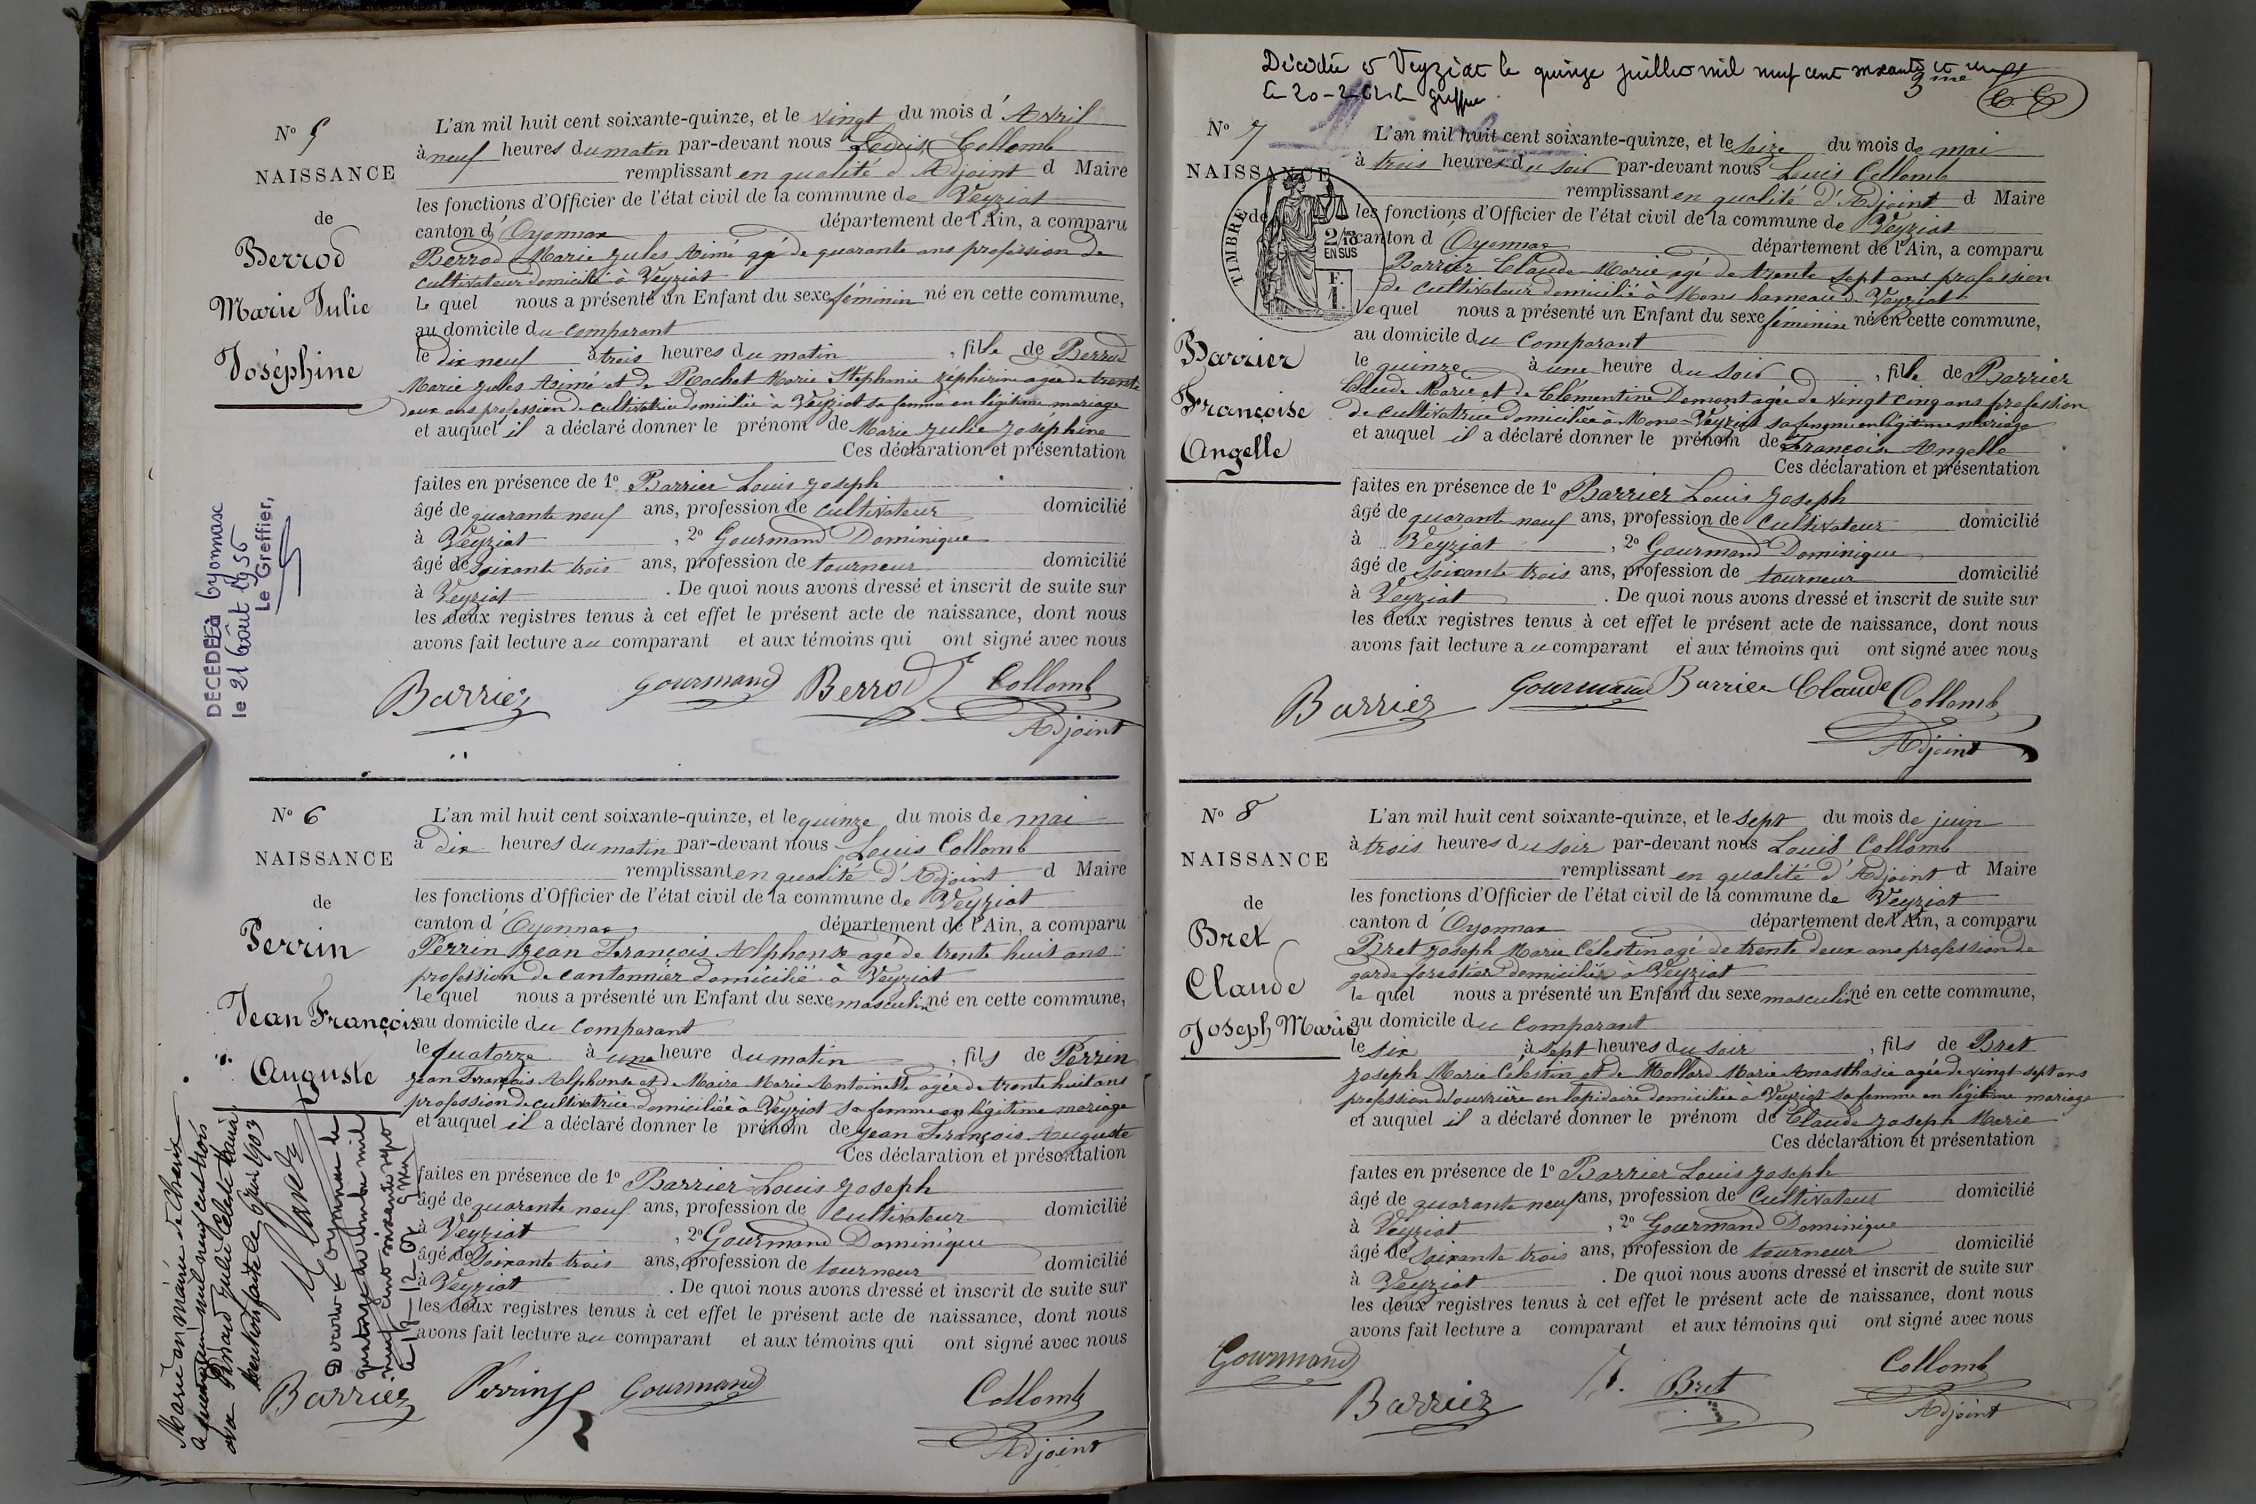 N° 5
NAISSANCE
de
Berrod
Marie Julie
Joséphine
L'an mil huit cent soixante-quinze, et le vingt du mois d'Avril
à neuf heures du matin par-devant nous Louis Collomb
remplissant en qualité d'Adjoint d Maire
les fonctions d'Officier de l'état civil de la commune de Veyziat
canton d'Oyonnax département de l'Ain, a comparu
Berrod Marie Jules Aimé agé de quarante ans profession de
cultivateur domicilié à Veyziat
Le quel nous a présenté un Enfant du sexe féminin né en cette commune,
au domicile du comparant
le dix neuf à trois heures du matin, fille de Berrod
Marie Jules Aimé et de Rochet Marie Stéphanie Zéphirine agée de trente
deux ans profession de cultivatrice domiciliée à Veyziat sa femme en légitime mariage
et auquel il a déclaré donner le prénom de Marie Julie Joséphine
Ces déclaration et présentation
faites en présence de 1° Barrier Louis Joseph
âgé de quarante neuf ans, profession de cultivateur domicilié
à Veyziat, 2° Gourmand Dominique
âgé de soixante trois ans, profession de tourneur domicilié
à Veyziat. De quoi nous avons dressé et inscrit de suite sur
les deux registres tenus à cet effet le présent acte de naissance, dont nous
avons fait lecture au comparant et aux témoins qui ont signé avec nous
Barrier Gourmand Berrod Collomb
Adjoint
DÉCÉDÉE à Oyonnax
le 21 août 1956
Le Greffier,
N° 6
NAISSANCE
de
Perrin
Jean François
Auguste
L'an mil huit cent soixante-quinze, et le quinze du mois de mai
à dix heures du matin par-devant nous Louis Collomb
remplissant en qualité d'Adjoint d Maire
les fonctions d'Officier de l'état civil de la commune de Veyziat
canton d'Oyonnax département de l'Ain, a comparu
Perrin Jean François Alphonse agé de trente huit ans
profession de cantonnier domicilié à Veyziat
le quel nous a présenté un Enfant du sexe masculin né en cette commune,
au domicile du comparant
le quatorze à une heure du matin, fils de Perrin
Jean François Alphonse et de Maire Marie Antoinette agée de trente huit ans
profession de cultivatrice domiciliée à Veyziat sa femme en légitime mariage
et auquel il a déclaré donner le prénom de Jean François Auguste
Ces déclaration et présentation
faites en présence de 1° Barrier Louis Joseph
âgé de quarante neuf ans, profession de cultivateur domicilié
à Veyziat, 2° Gourmand Dominique
âgé de soixante trois ans, profession de tourneur domicilié
à Veyziat. De quoi nous avons dressé et inscrit de suite sur
les deux registres tenus à cet effet le présent acte de naissance, dont nous
avons fait lecture au comparant et aux témoins qui ont signé avec nous
Barrier Perrin Gourmand Collomb
Adjoint
Marié en mairie de
mil neuf cent trois
avec Julie
Mention faite le 6 1903
à Oyonnax le
quatorze mil
neuf cent soixante
le 17-12-
Décédée à Veyziat le quinze juillet mil neuf cent soixante et un
Le 20-2-62 Le greffier
N° 7
NAISSANCE
de
TIMBRE
2/10
EN SUS
F.
1.
Barrier
Françoise
Angelle
L'an mil huit cent soixante-quinze, et le seize du mois de mai
à trois heures du soir par-devant nous Louis Collomb
remplissant en qualité d'Adjoint d Maire
les fonctions d'Officier de l'état civil de la commune de Veyziat
canton d'Oyonnax département de l'Ain, a comparu
Barrier Claude Marie agé de trente sept ans profession
de cultivateur domicilié à Mons hameau de Veyziat
Lequel nous a présenté un Enfant du sexe féminin né en cette commune,
au domicile du comparant
le quinze à une heure du soir, fille de Barrier
Claude Marie et de Clémentine Demont agée de vingt cinq ans profession
de cultivatrice domiciliée à Mons-Veyziat sa femme en légitime mariage
et auquel il a déclaré donner le prénom de Françoise Angelle
Ces déclaration et présentation
faites en présence de 1° Barrier Louis Joseph
âgé de quarante neuf ans, profession de cultivateur domicilié
à Veyziat, 2° Gourmand Dominique
âgé de soixante trois ans, profession de tourneur domicilié
à Veyziat. De quoi nous avons dressé et inscrit de suite sur
les deux registres tenus à cet effet le présent acte de naissance, dont nous
avons fait lecture au comparant et aux témoins qui ont signé avec nous
Barrier Gourmand Barrier Claude Collomb
Adjoint
N° 8
NAISSANCE
de
Bret
Claude
Joseph Marie
L'an mil huit cent soixante-quinze, et le sept du mois de juin
à trois heures du soir par-devant nous Louis Collomb
remplissant en qualité d'Adjoint d Maire
les fonctions d'Officier de l'état civil de la commune de Veyziat
canton d'Oyonnax département de l'Ain, a comparu
Bret Joseph Marie Célestin agé de trente deux ans profession de
garde forestier domicilié à Veyziat
le quel nous a présenté un Enfant du sexe masculin né en cette commune,
au domicile du comparant
le six à sept heures du soir, fils de Bret
Joseph Marie Célestin et de Mollard Marie Anasthasie agée de vingt sept ans
profession d'ouvrière en lapidaire domiciliée à Veyziat sa femme en légitime mariage
et auquel il a déclaré donner le prénom de Claude Joseph Marie
Ces déclaration et présentation
faites en présence de 1° Barrier Louis Joseph
âgé de quarante neuf ans, profession de cultivateur domicilié
à Veyziat, 2° Gourmand Dominique
âgé de soixante trois ans, profession de tourneur domicilié
à Veyziat. De quoi nous avons dressé et inscrit de suite sur
les deux registres tenus à cet effet le présent acte de naissance, dont nous
avons fait lecture a comparant et aux témoins qui ont signé avec nous
Gourmand Barrier Bret Collomb
Adjoint